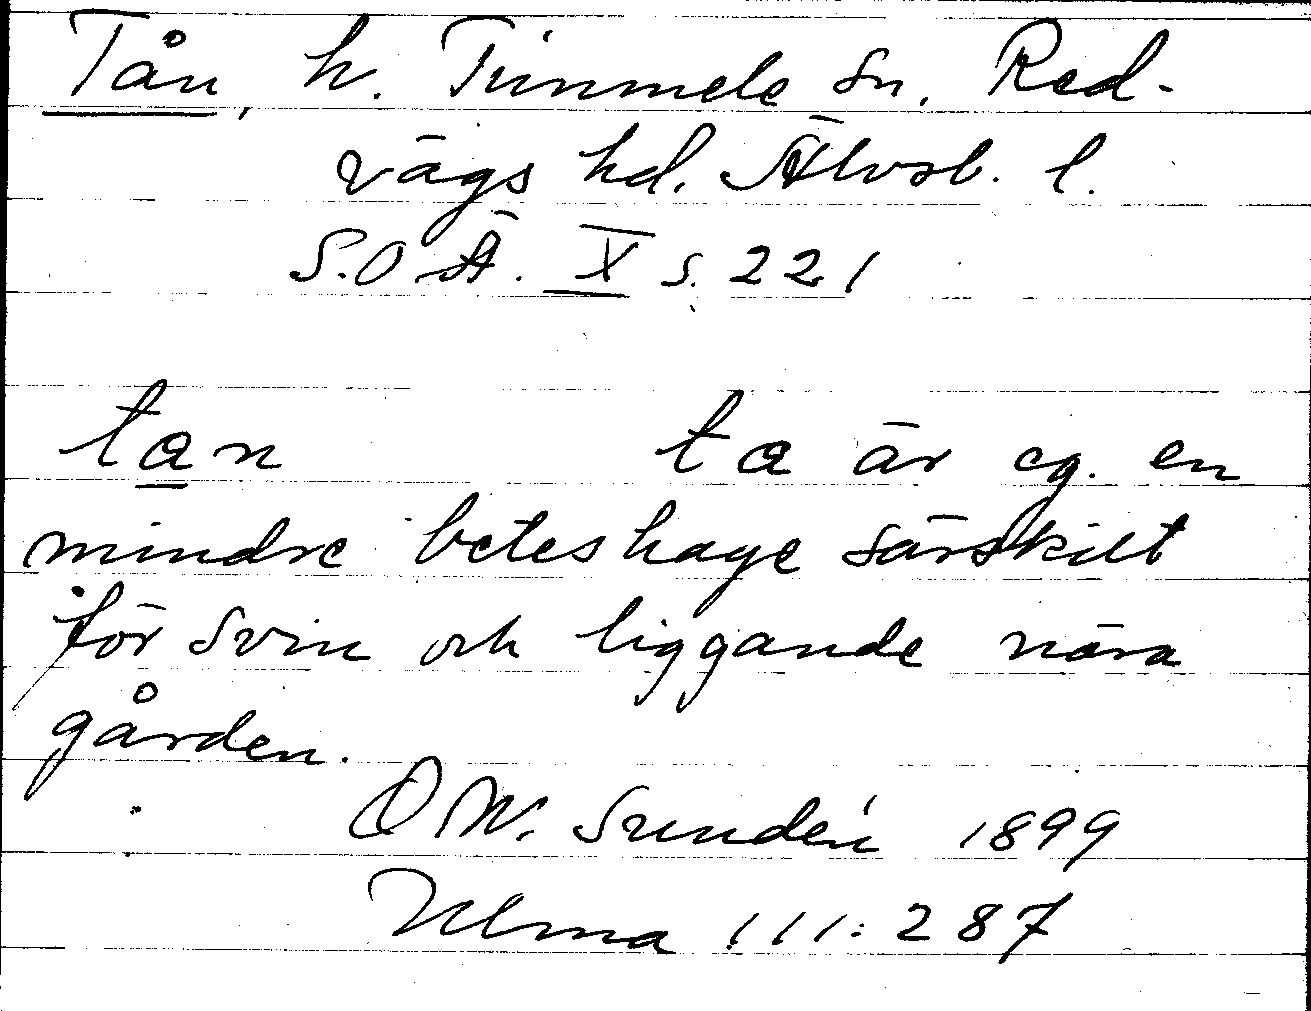 Tån, h. Timmele sn. Red-
vägs hd. Älvsb. l.
S.O.Ä. X s. 221
tan ta är eg. en
mindre beteshage särskilt
för svin och liggande nära
gården.
O W. Sundén 1899
Ulma 111:287